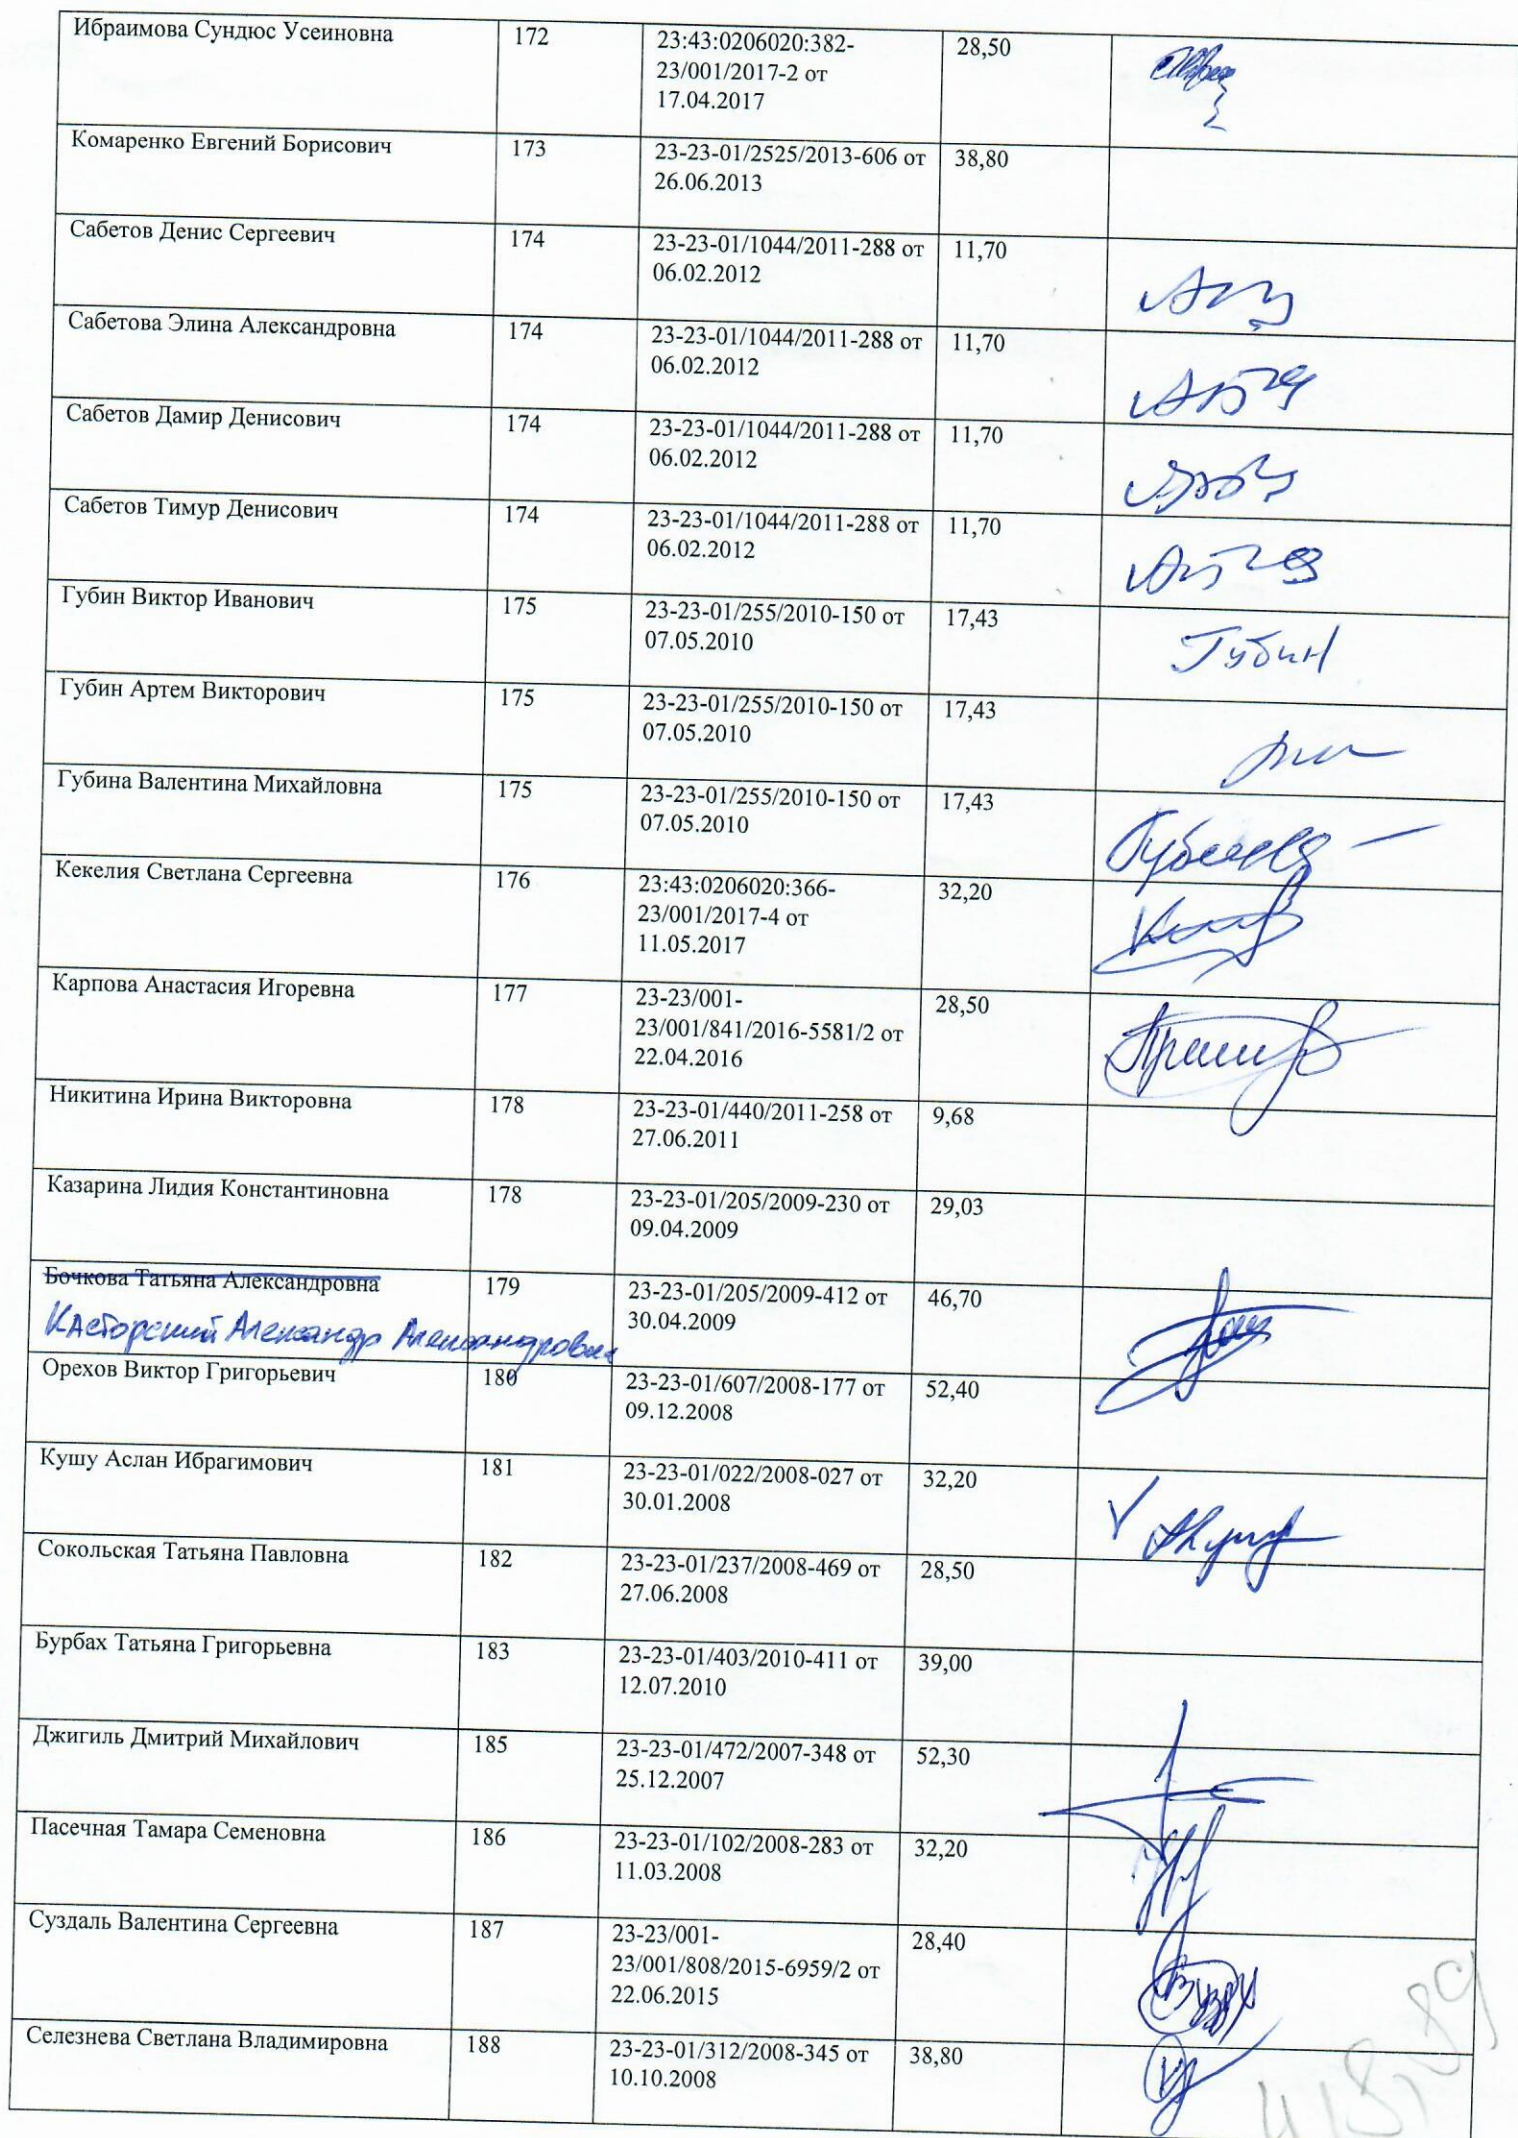 Ибраимова Сундюс Усеиновна 172 23:43:0206020:382- 28,50
23/001/2017-2 от
17.04.2017
Комаренко Евгений Борисович 173 23-23-01/2525/2013-606 от 38,80
26.06.2013
Сабетов Денис Сергеевич 174 23-23-01/1044/2011-288 от 11,70
06.02.2012
Сабетова Элина Александровна 174 23-23-01/1044/2011-288 от 11,70
06.02.2012
Сабетов Дамир Денисович 174 23-23-01/1044/2011-288 от 11,70
06.02.2012
Сабетов Тимур Денисович 174 23-23-01/1044/2011-288 от 11,70
06.02.2012
Губин Виктор Иванович 175 23-23-01/255/2010-150 от 17,43
07.05.2010 Губин
Губин Артем Викторович 175 23-23-01/255/2010-150 от 17,43
07.05.2010
Губина Валентина Михайловна 175 23-23-01/255/2010-150 от 17,43
07.05.2010
Кекелия Светлана Сергеевна 176 23:43:0206020:366- 32,20
23/001/2017-4 от
11.05.2017
Карпова Анастасия Игоревна 177 23-23/001- 28,50
23/001/841/2016-5581/2 от
22.04.2016
Никитина Ирина Викторовна 178 23-23-01/440/2011-258 от 9,68
27.06.2011
Казарина Лидия Константиновна 178 23-23-01/205/2009-230 от 29,03
09.04.2009
Бочкова Татьяна Александровна 179 23-23-01/205/2009-412 от 46,70
Касторский Александр Александрович 30.04.2009
Орехов Виктор Григорьевич 180 23-23-01/607/2008-177 от 52,40
09.12.2008
Кушу Аслан Ибрагимович 181 23-23-01/022/2008-027 от 32,20
30.01.2008
Сокольская Татьяна Павловна 182 23-23-01/237/2008-469 от 28,50
27.06.2008
Бурбах Татьяна Григорьевна 183 23-23-01/403/2010-411 от 39,00
12.07.2010
Джигиль Дмитрий Михайлович 185 23-23-01/472/2007-348 от 52,30
25.12.2007
Пасечная Тамара Семеновна 186 23-23-01/102/2008-283 от 32,20
11.03.2008
Суздаль Валентина Сергеевна 187 23-23/001- 28,40
23/001/808/2015-6959/2 от
22.06.2015
Селезнева Светлана Владимировна 188 23-23-01/312/2008-345 от 38,80
10.10.2008